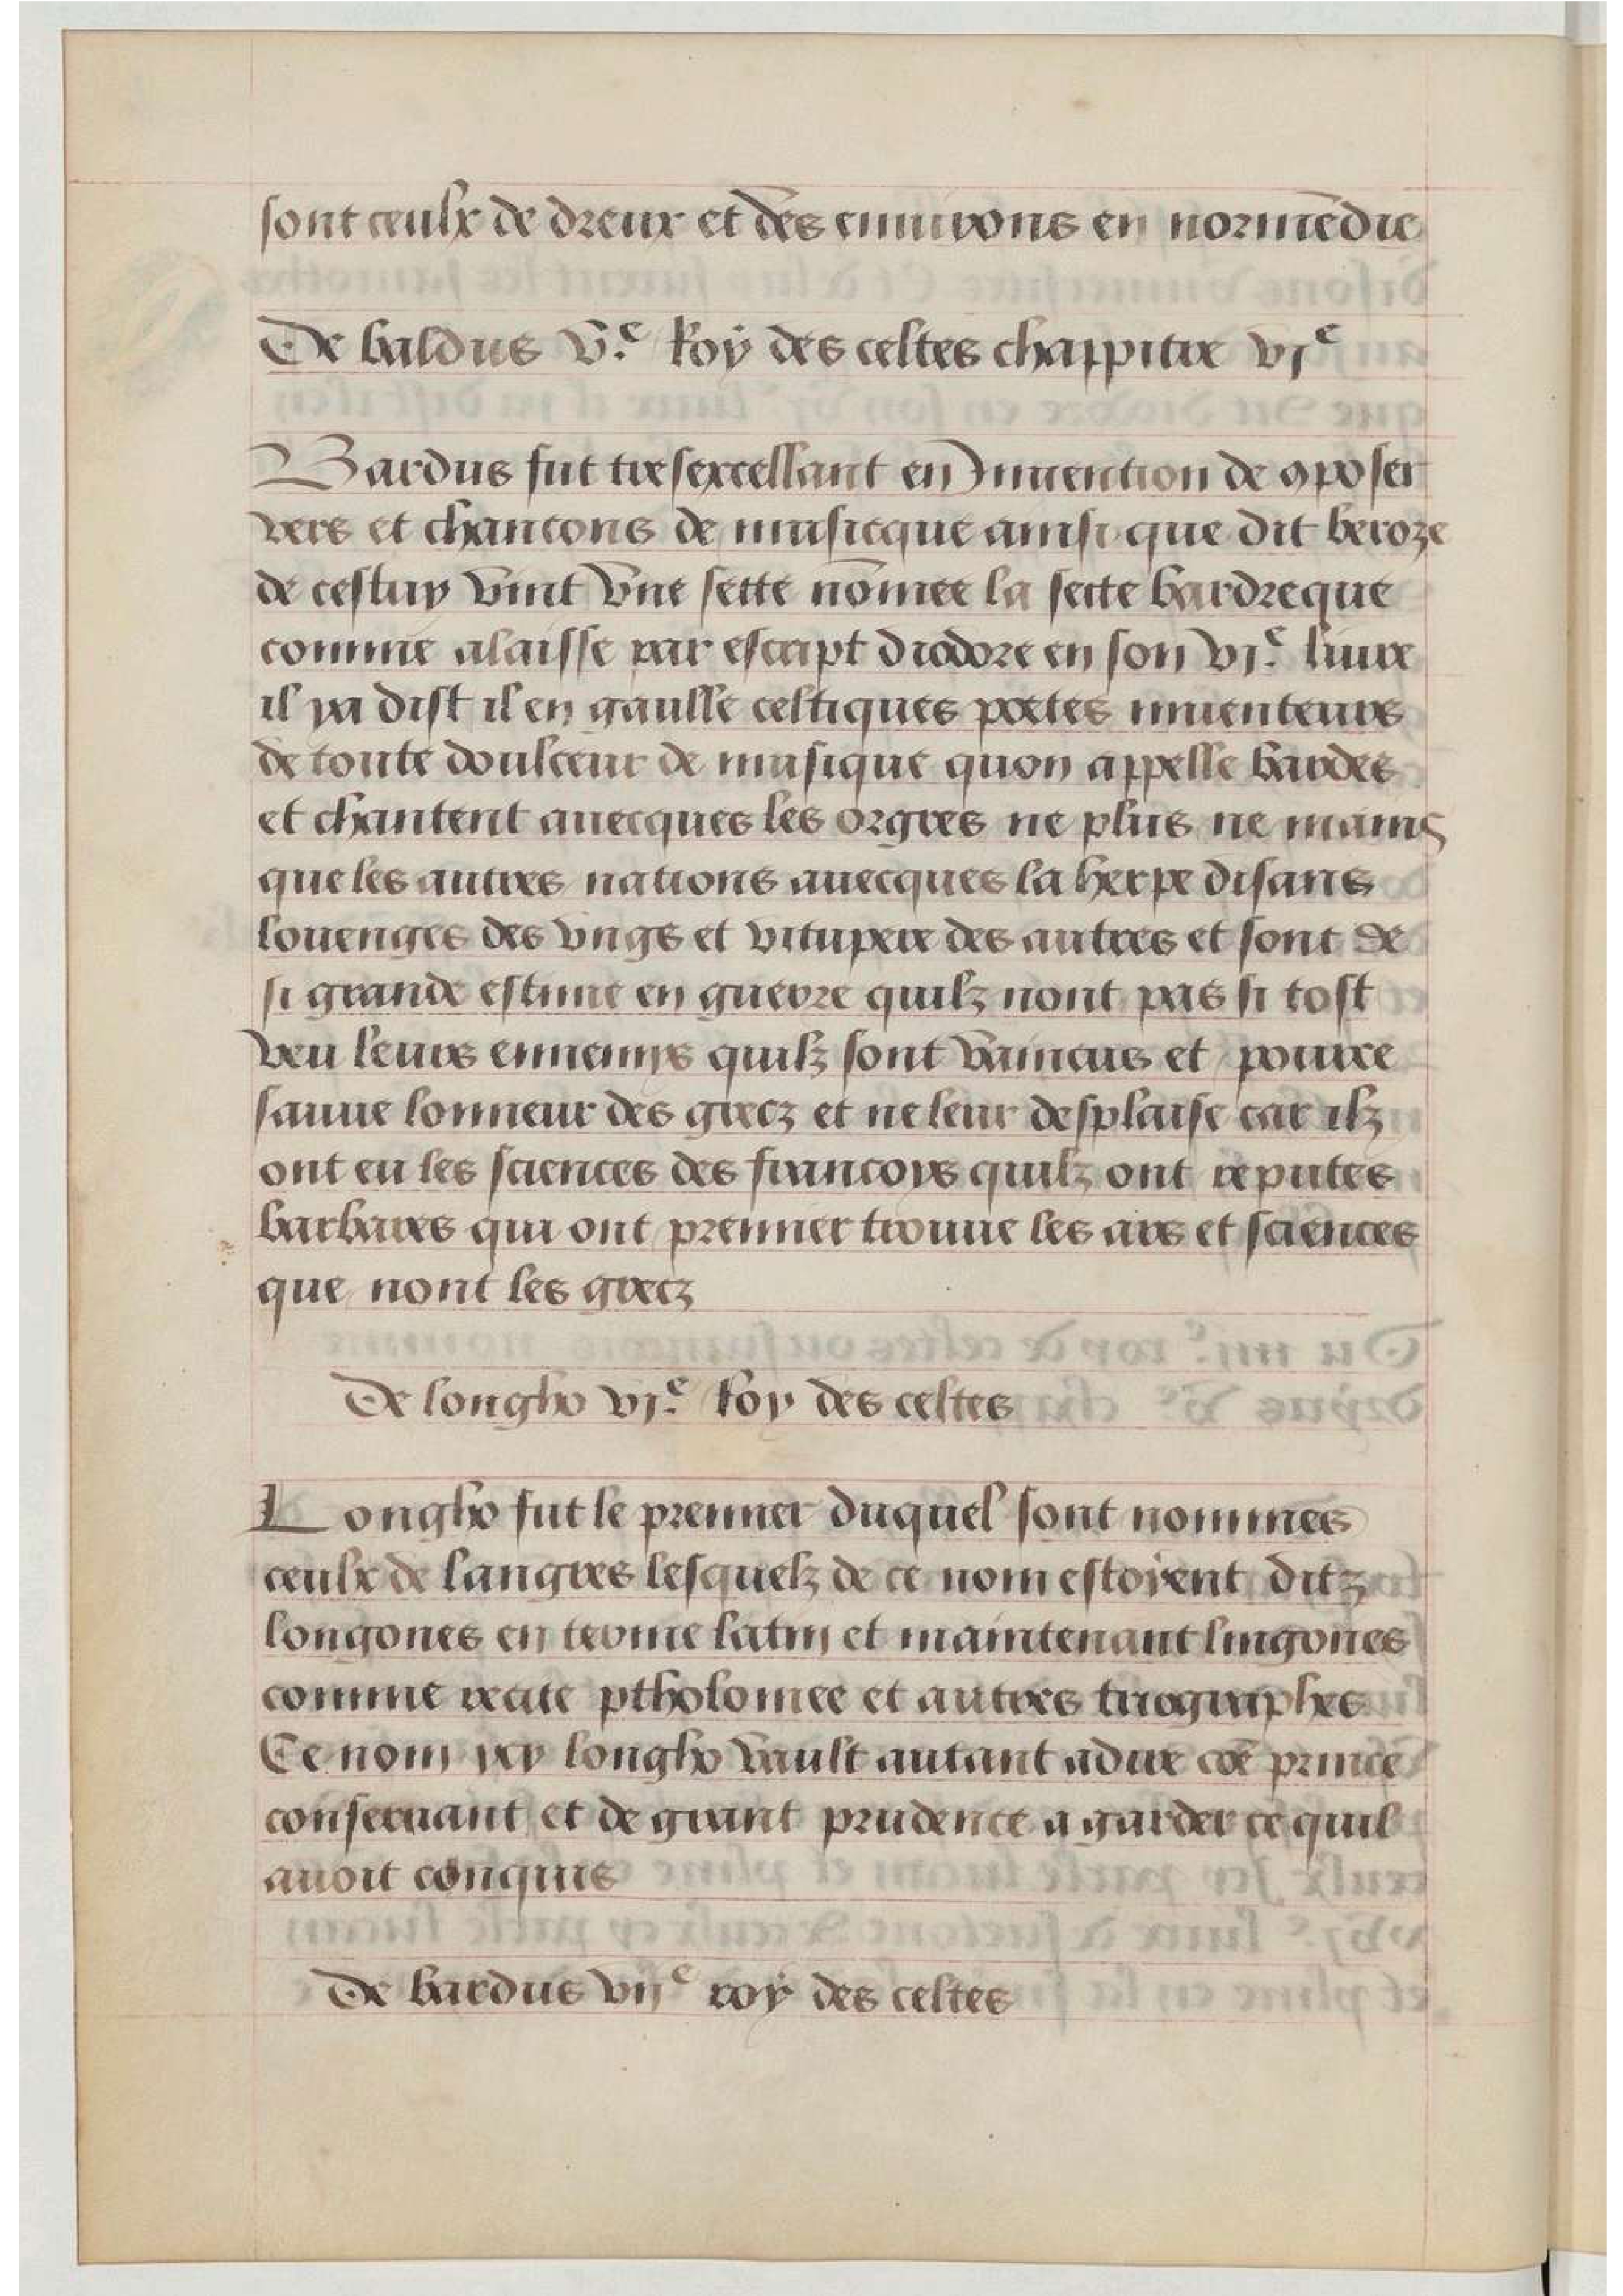 sont ceulx de dreux et des enuirons en normẽdie
De baldus v.e Roy des celtes chappitre vje
Bardus fut tresexcellant en Jnuention de ꝯposer
vers et chancons de musicque ainsi que dit beroze
de cestuy vint vne sette nõmee la secte bardreque
comme alaisse par escript diodore en son vj.e liure
il ya dist il en gaulle celtiques poetes inuenteurs
de toute doulceur de musique quon appelle bardes
et chantent auecques les orgres ne plus ne mains
que les autres nations auecques la herpe disans
louenges des vngs et vitupere des autres et sont de
si grande estime en guerre quilz nont pas si tost
veu leurs ennemys quilz sont vaincus et pource
sauue lonneur des grecz et ne leur desplaise car ilz
ont eu les sciences des francoys quilz ont reputes
barbares qui ont premier trouue les ars et sciences
que nont les grecz
De longho vj.e Roy des celtes
Longho fut le premier duquel sont nommes
ceulx de langres lesquelz de ce nom estoyent ditz
longones en terme latin et maintenant lingones
comme recite ptholomee et autres
Ce nom ycy longho vault autant adire cõe prince
conseruant et de grant prudence a garder ce quil
auoit conquis
De bardus vije roy des celtes